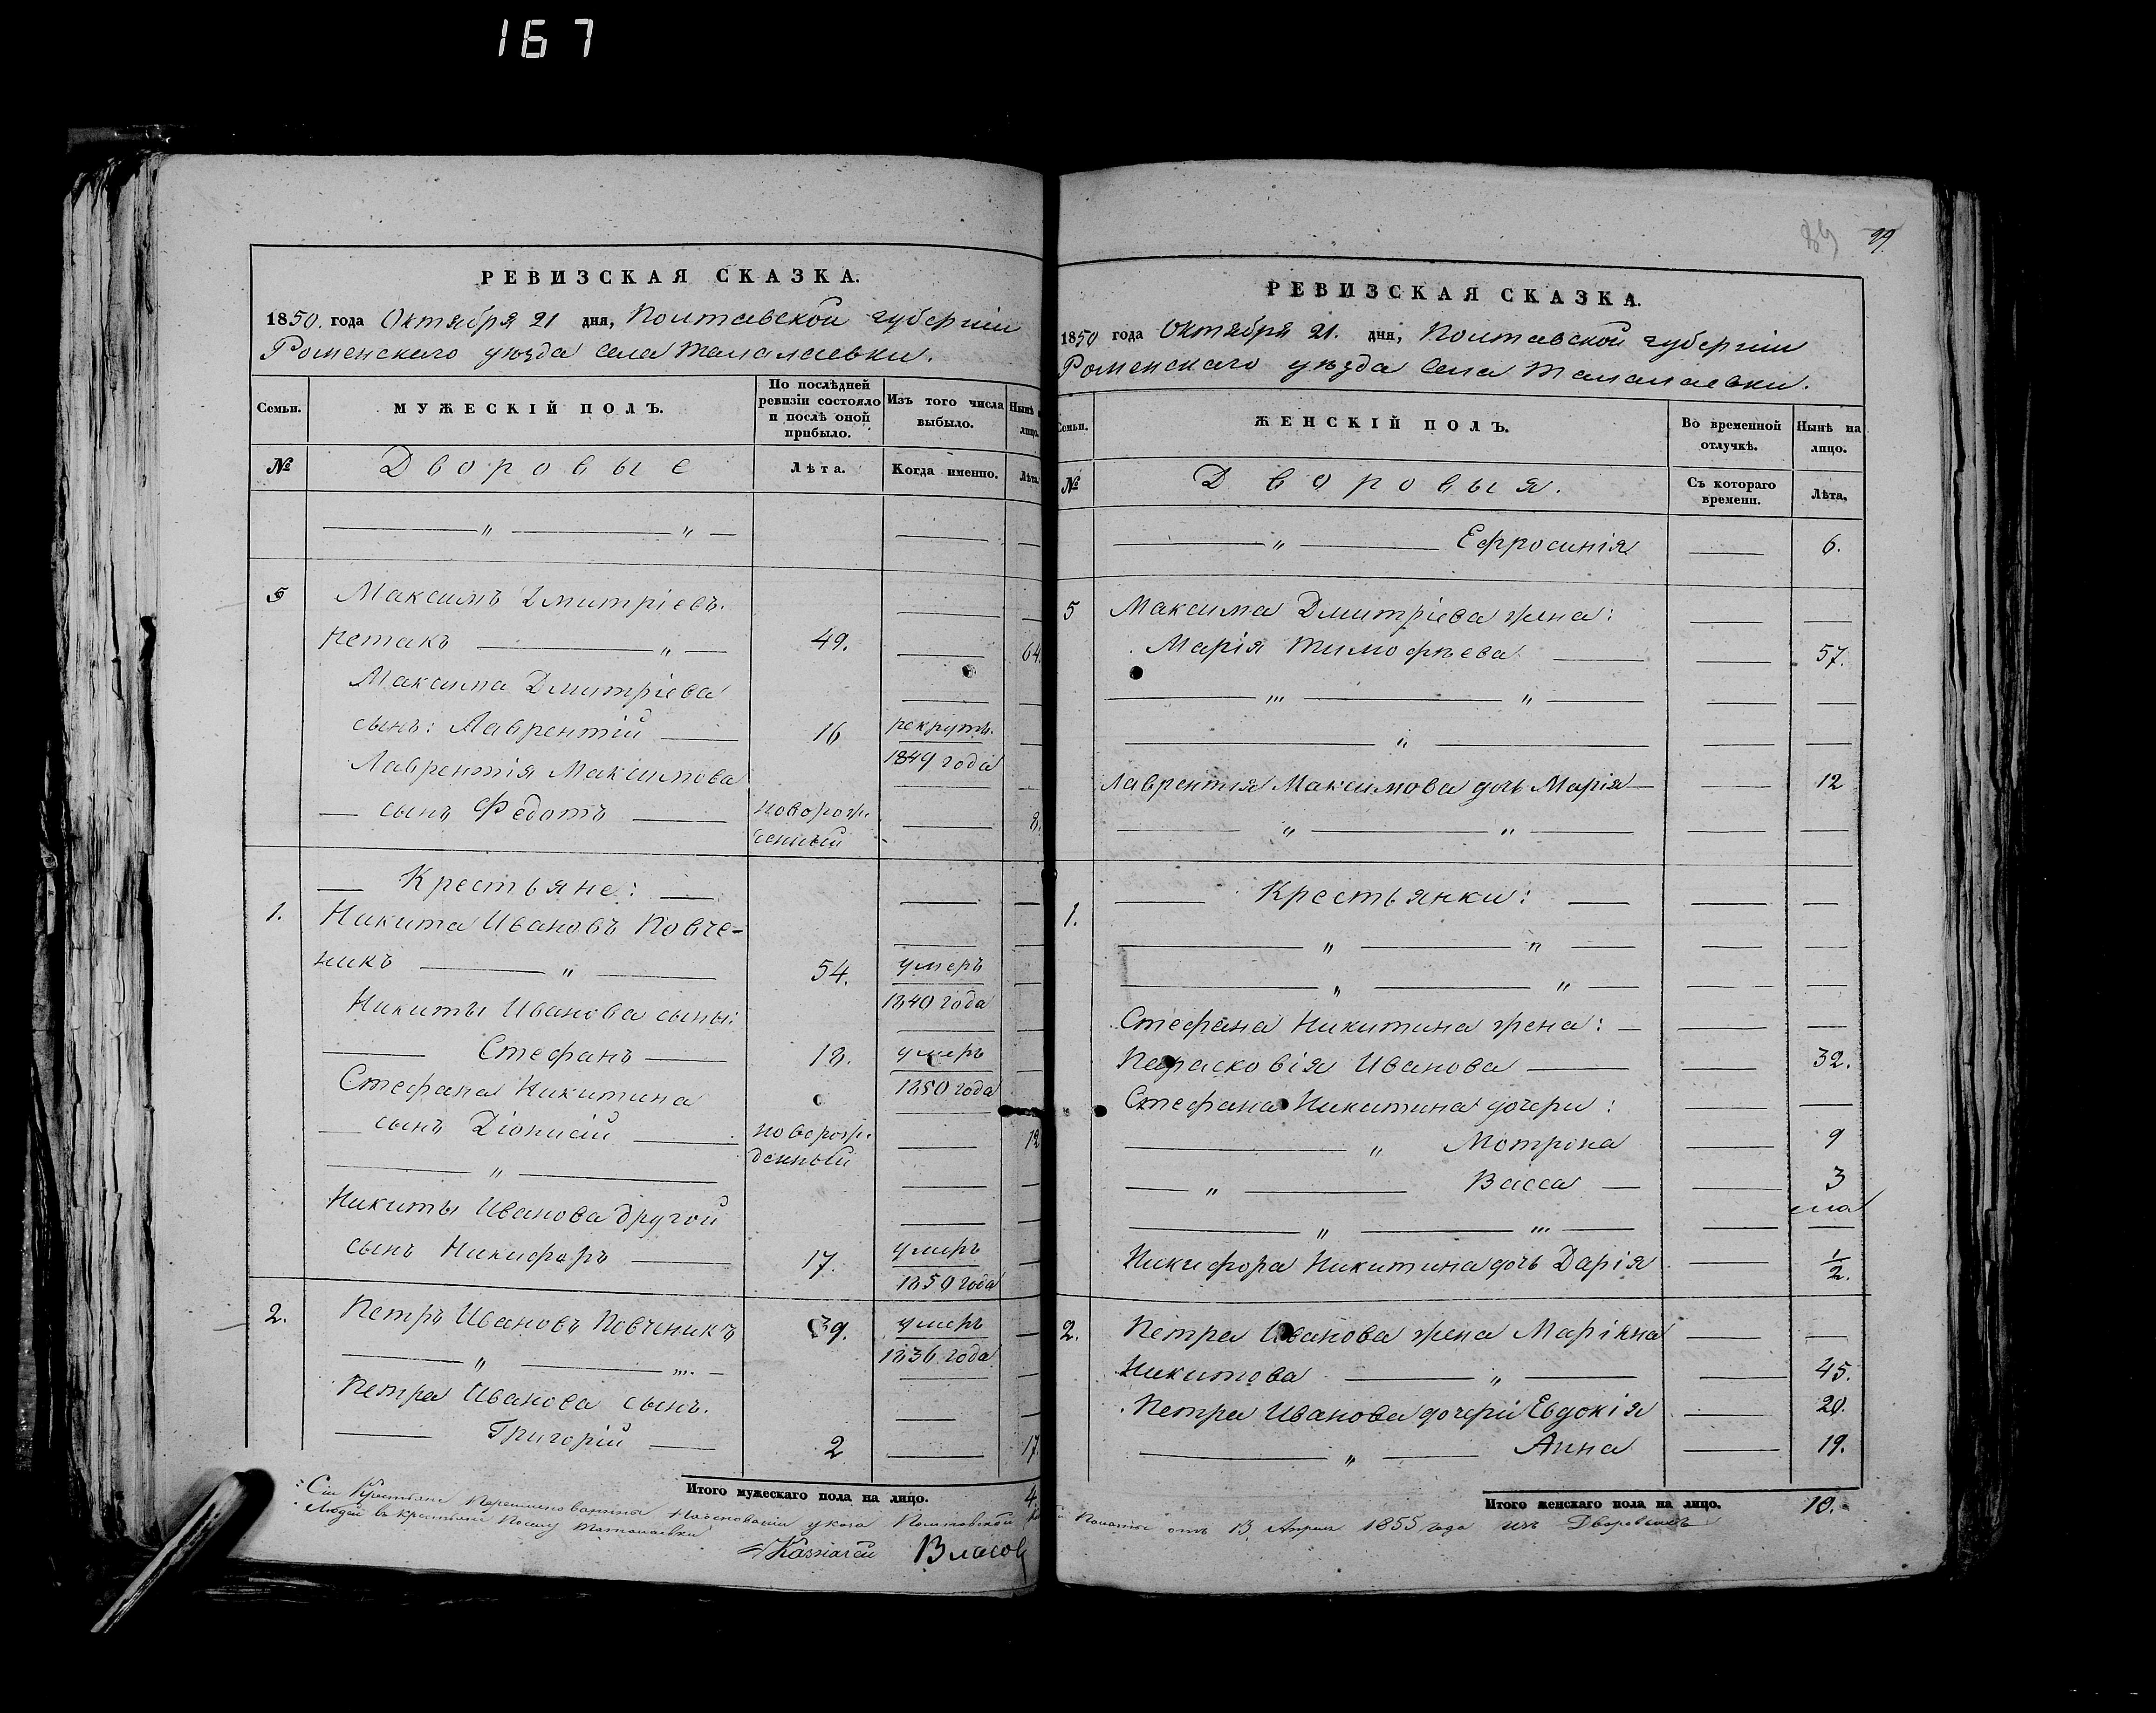 167
РЕВИЗСКАЯ СКАЗКА.
1850. года Октября 21 дня, Полтавской губерніи
Роменскаго уѣзда села Талалаевки.
Семьи.
МУЖЕСКІЙ ПОЛЪ.
По послѣдней
ревизіи состояло
и послѣ оной
прибыло.
Изъ того числа
выбыло.
Нынѣ
лицо.
№
Дворовые
Лѣта.
Когда именно.
Лѣта.
5 Максимъ Дмитріевъ
Нетакъ 49. 64.
Максима Дмитріева
сынъ: Лаврентій 16 рекрутъ.
1849 года
Лаврентія Максимова
сынъ Федотъ новорож- 8.
денный
Крестьяне:
1. Никита Ивановъ Повче-
никъ 54. умеръ
1840 года
Никиты Иванова сыны:
Стефанъ 18. умеръ
1850 года
Стефана Никитина
сынъ Діонисій новорож- 12
денный
Никиты Иванова другой
сынъ Никифоръ 17. умеръ
1850 года
2. Петръ Ивановъ Повченикъ 39. умеръ
1836 года
Петра Иванова сынъ.
Григорій 2 17.
Итого мужескаго пола на лицо. 4.
Сіи Крестьяне Переименованы На основаніи указа Полтавской
Людей въ крестьяне Талалаевки
Власов
99.
РЕВИЗСКАЯ СКАЗКА.
1850 года Октября 21. дня, Полтавской губерніи
Роменскаго уѣзда села Талалаевки.
Семьи.
ЖЕНСКІЙ ПОЛЪ.
Во временной
отлучкѣ.
Нынѣ на
лицо.
№
Дворовыя.
Съ котораго
времени.
Лѣта.
Ефросинія 6.
5 Максима Дмитріева жена:
Марія Тимофѣева 57.
Лаврентія Максимова дочь Марія 12
Крестьянки:
1.
Стефана Никитина жена:
Парасковія Иванова 32.
Стефана Никитина дочери:
Мотрона 9
Васса 3
Никифора Никитина дочь Дарія 1/2.
2. Петра Иванова жена Маріяна
Никитова 45.
Петра Иванова дочери Евдокія 20.
Анна 19.
Итого женскаго пола на лицо. 10.
Палаты отъ 13 Апреля 1855 года изъ Дворовыхъ